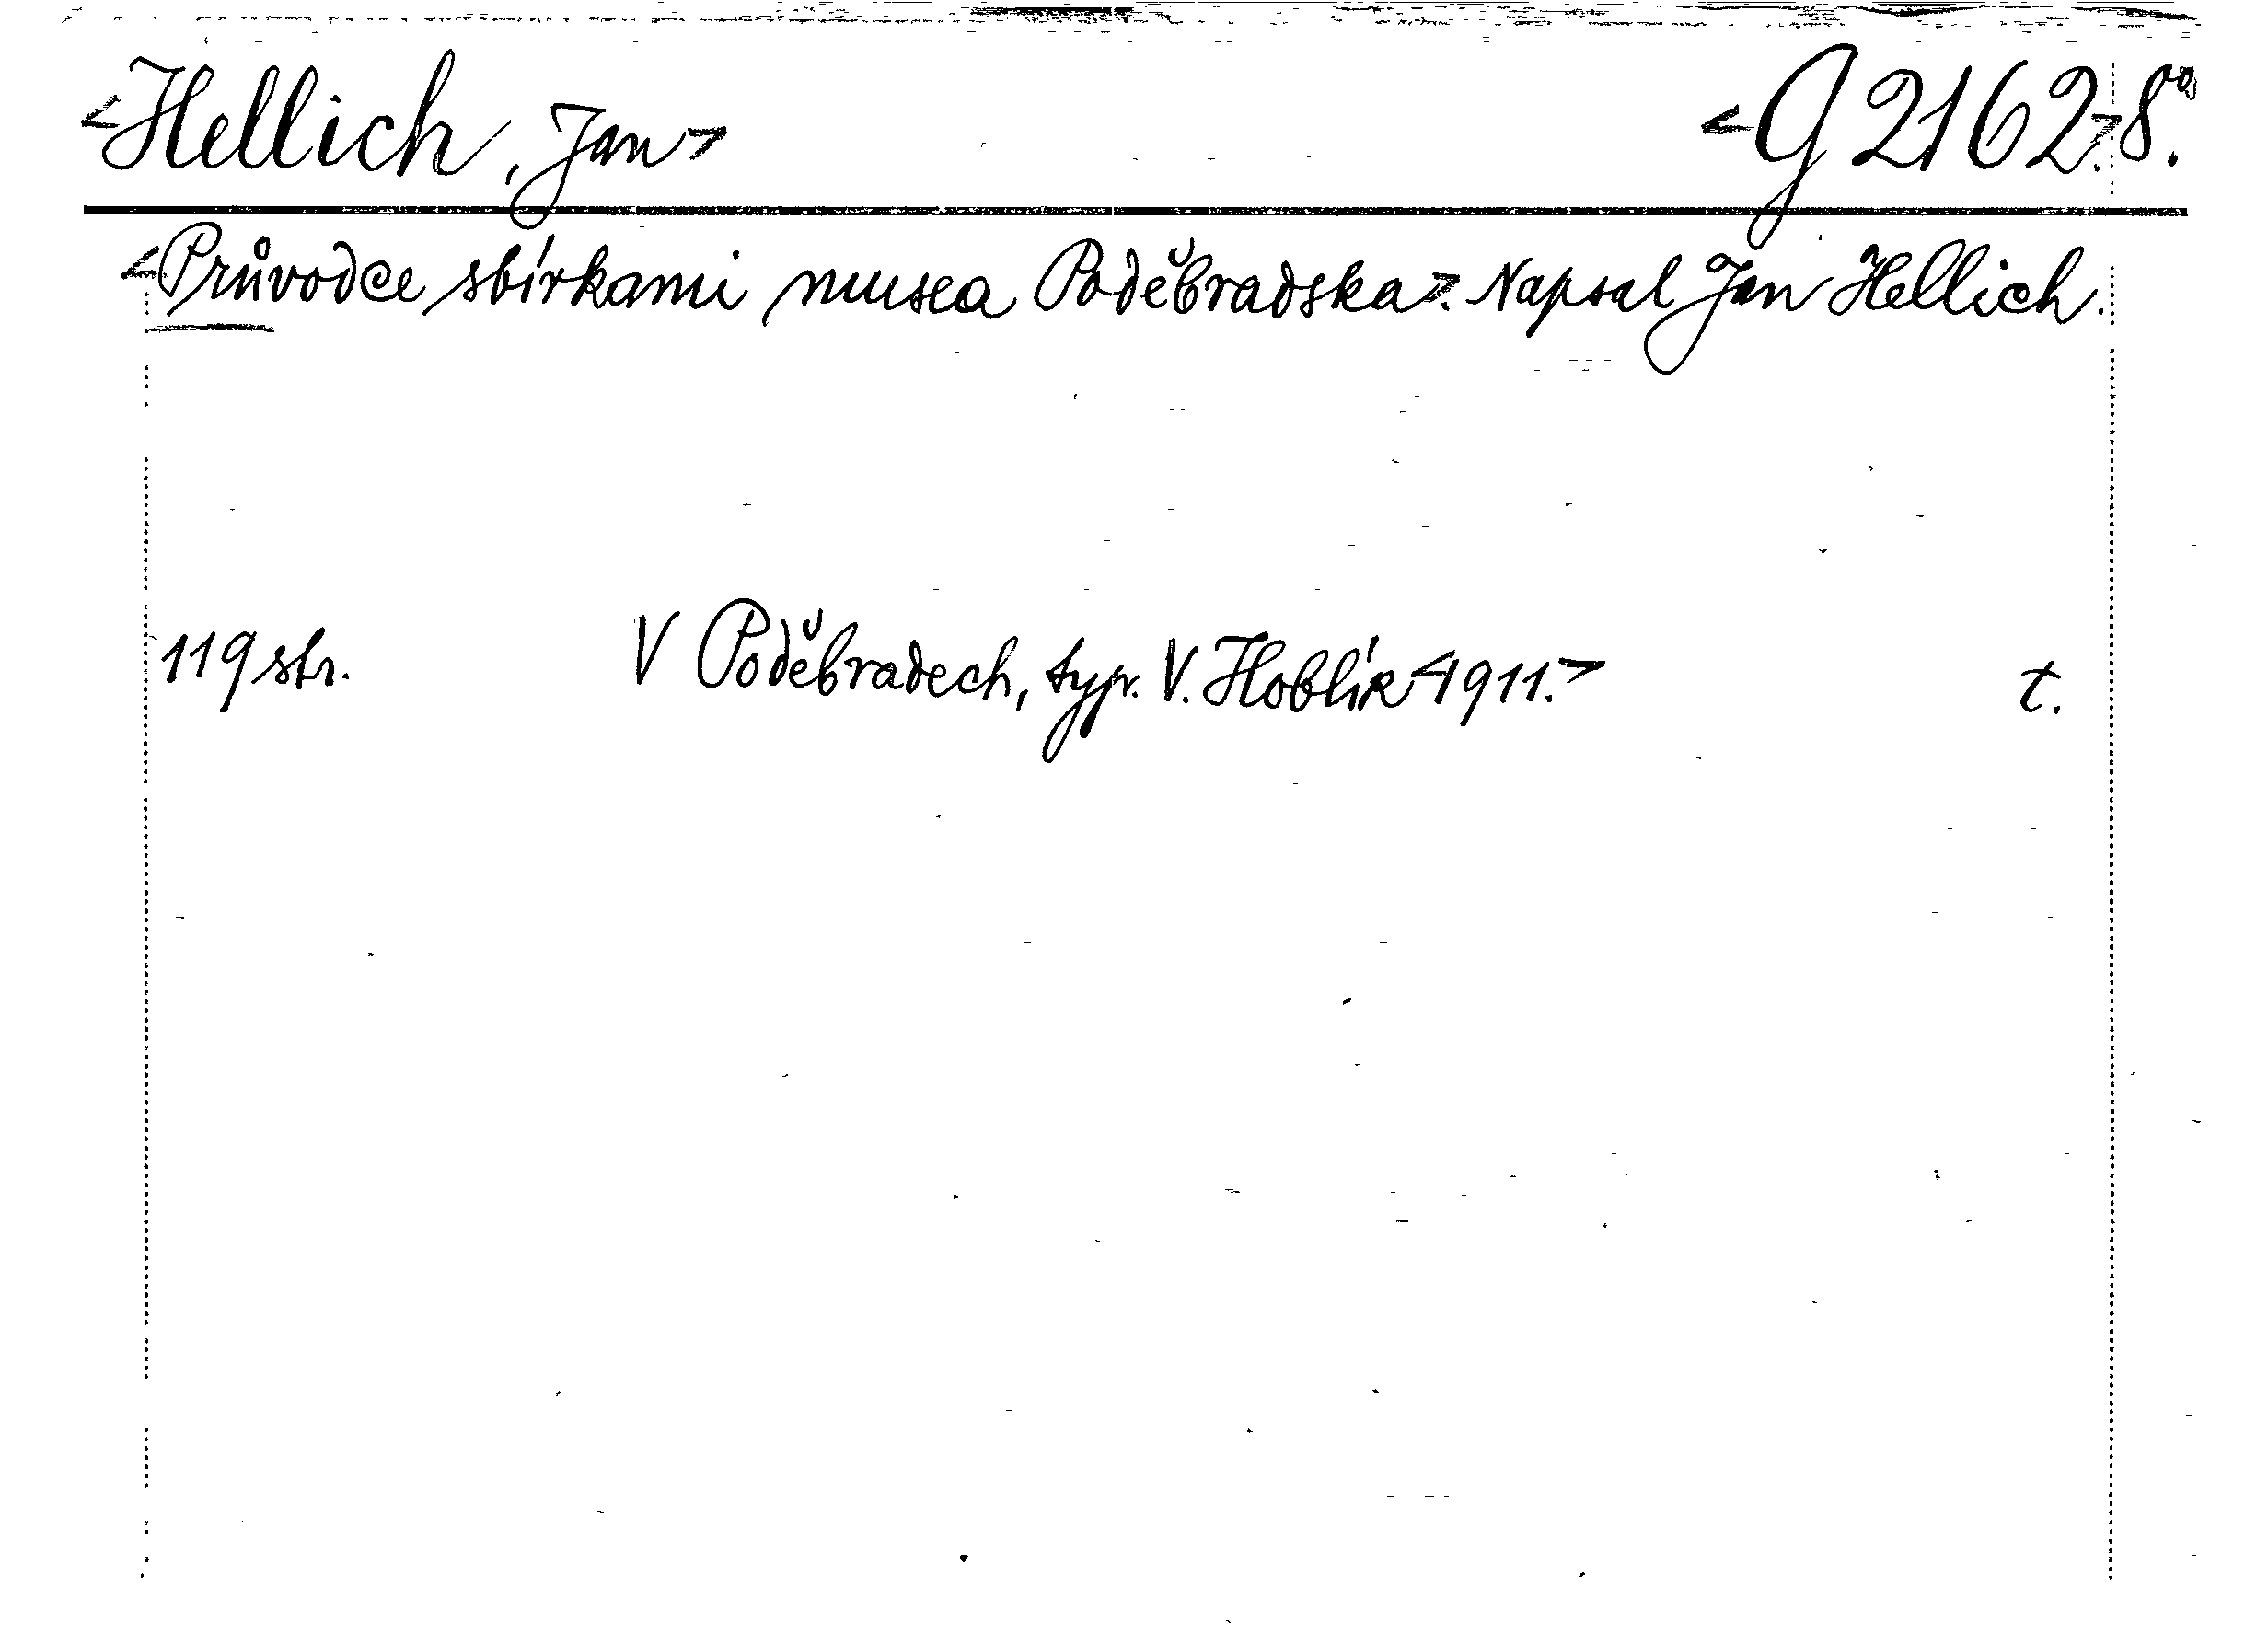 <Hellich, Jan> <G 2162.> 8°.
<Průvodce sbírkami musea Poděbradska>. Napsal Jan Hellich.
119 str. V Poděbradech, typ. V. Hoblík <1911.> t.